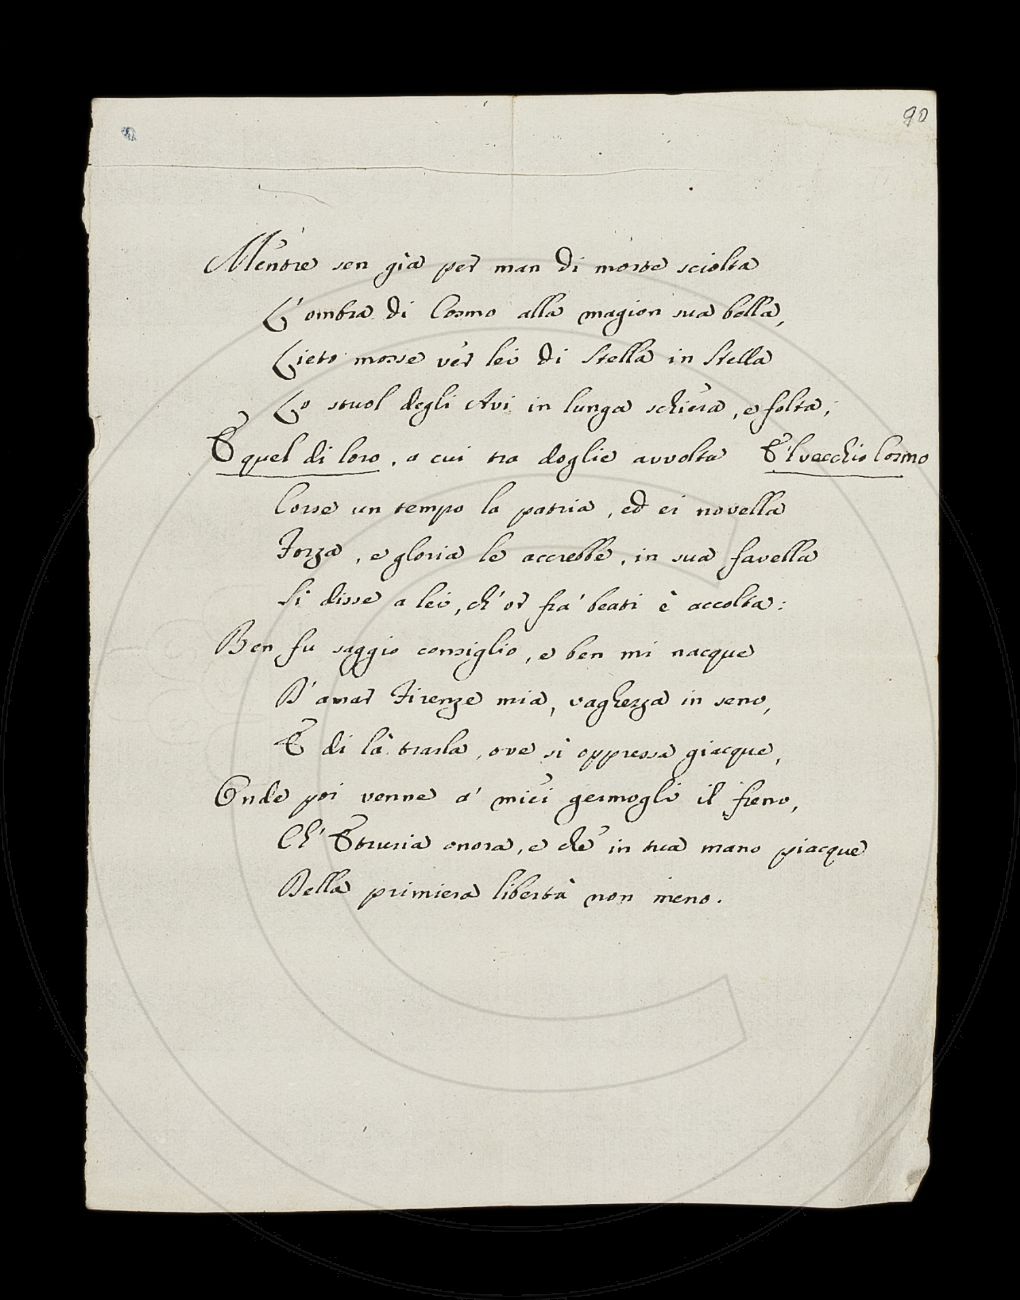 90
Mentre sen gìa per man di morte sciolta
L'ombra di Cosmo alla magion sua bella,
Lieto mosse ver lei di Stella in Stella
Lo stuol degli Avi in lunga schiera, e folta;
E quel di loro, a cui tra doglie avvolta E'l vecchio Cosmo
Corse un tempo la patria, ed ei novella
Forza, e gloria le accrebbe, in sua favella
Si disse a lei, ch'or fra' beati è accolta:
Ben fu saggio consiglio, e ben mi nacque
D'amar Firenze mia, vaghezza in seno,
E di là trarla, ove sì oppressa giacque,
Onde poi venne a' miei germogli il freno,
Ch'Etruria onora, e che in tua mano piacque
Della primiera libertà non meno.